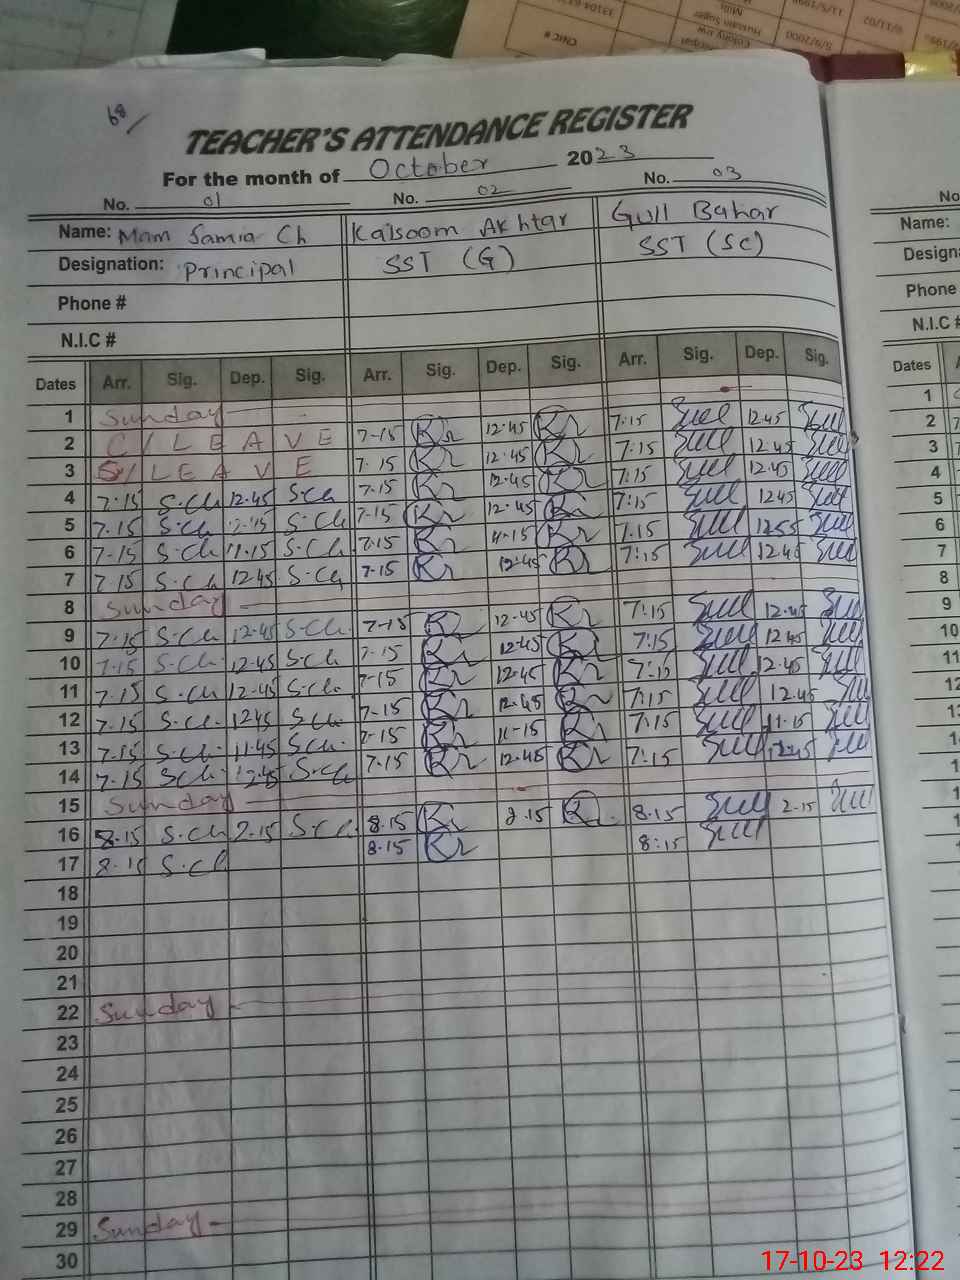 CNIC #
33104
Hussain Sugar
Mills
5/9/2000
11/5/199
02/11/9
68/
TEACHER'S ATTENDANCE REGISTER
For the month of October 2023
No. 01 No. 02 No. 03
Name: Mam Samia Ch Kalsoom Akhtar Gull Bahar
Designation: Principal SST (G) SST (SC)
Phone #
N.I.C #
Dates Arr. Sig. Dep. Sig. Arr. Sig. Dep. Sig. Arr. Sig. Dep. Sig.
1 Sunday
2 C/LEAVE 7-15 12.45 7:15 12.45
3 LEAVE 7.15 12.45 7:15 12.45
4 7:15 S.Ch 12.45 S.Ch 7.15 12.45 7:15 12.45
5 7.15 S.Ch S.Ch 7-15 12.45 7:15 12.45
6 7-15 S.Ch 11.15 S.Ch 7.15 11-15 7.15
7 7.15 S.Ch 12.45 S.Ch 7-15 12.45 7:15 12.45
8 Sunday
9 7:15 S.Ch 12.45 S.Ch. 7-15 12.45 7:15 12.45
10 7.15 S.Ch 12.45 S.Ch 7-15 12.45 7:15 12.45
11 7.15 S.Ch 12.45 S.Ch. 7-15 12.45 7:15 12.45
12 7.15 S.Ch. 1245 S.Ch. 7-15 12.45 7:15 12.45
13 7.15 S.Ch. 11.45 S.Ch. 7-15 11-15 7:15 11.15
14 7-15 S.Ch 12.45 S.Ch 7.15 12.45 7:15 12.45
15 Sunday
16 8.15 S.Ch 2.15 S.Ch 8.15 2.15 8.15 2.15
17 8.15 S.Ch 8.15 8:15
18
19
20
21
22 Sunday
23
24
25
26
27
28
29 Sunday
30
No
Name:
Design
Phone
N.I.C #
Dates
1
2
3
4
5
6
7
8
9
10
11
12
17-10-23 12:22